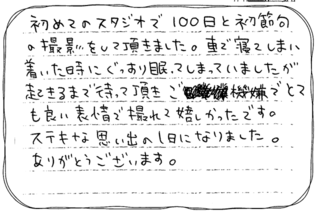 初めてのスタジオで100日と初節句
の撮影をして頂きました。車で寝てしまい
着いた時にぐっすり眠ってしまっていましたが
起きるまで待って頂き ご機嫌でとて
も良い表情で撮れて嬉しかったです。
ステキな思い出の1日になりました。
ありがとうございます。